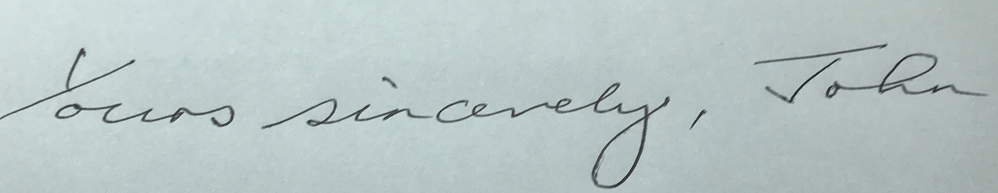 Yours sincerely, John